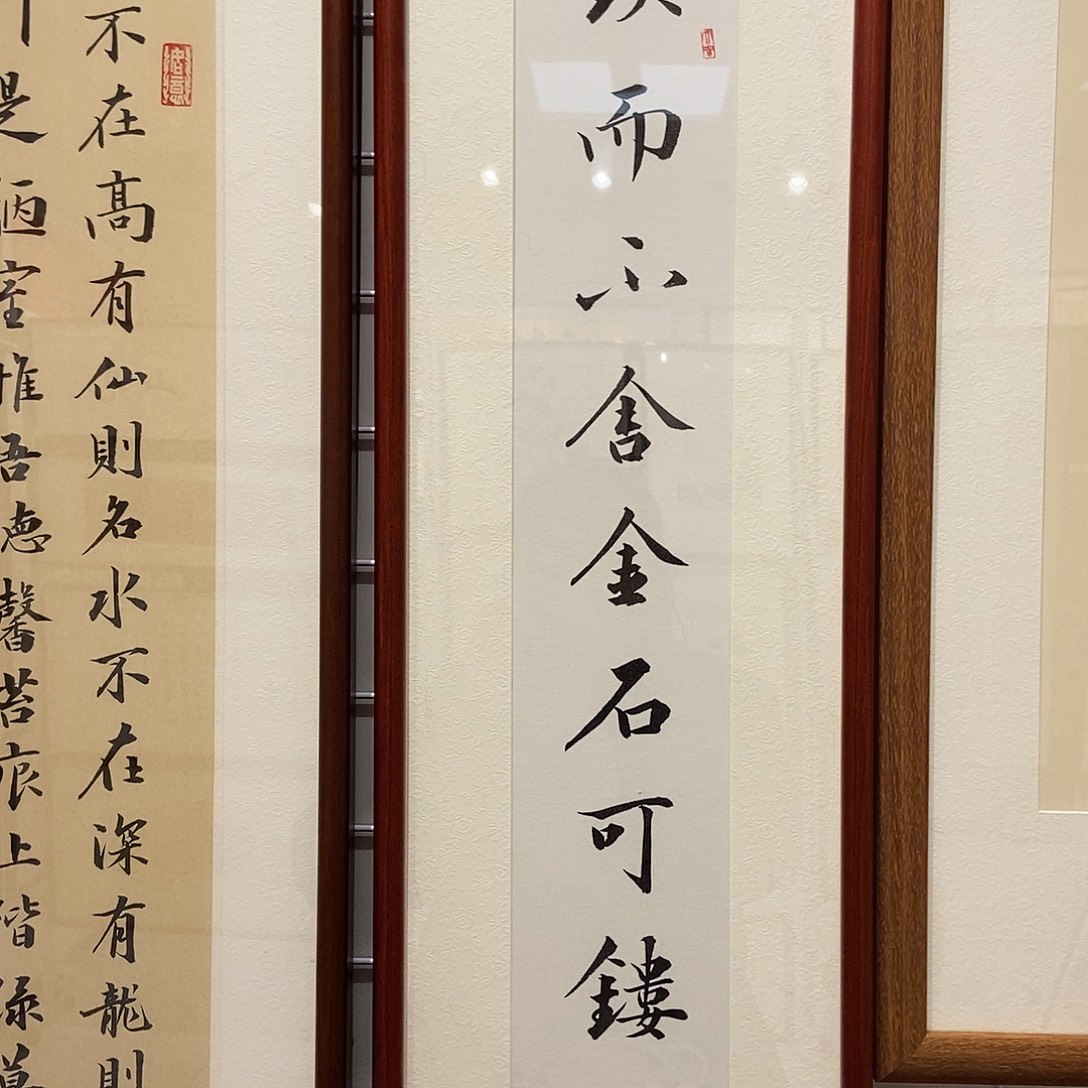 而不舍金石可鏤
不在高有仙則名水不在深有龍則
是陋室惟吾德馨苔痕上階綠